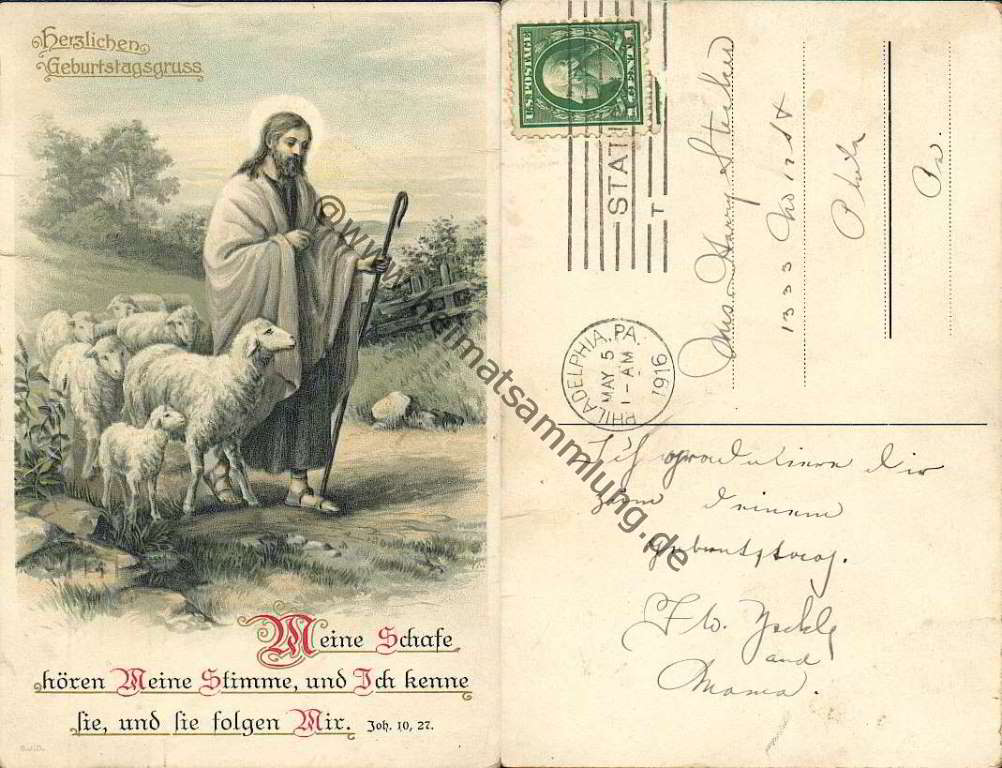 Herzlichen
Geburtstagsgruss
Meine Schafe
hören Meine Stimme, und Ich kenne
sie, und sie folgen Mir. Joh. 10, 27.
U.S. POSTAGE
1 CENT 1
STAT
T
PHILADELPHIA, PA.
MAY 5
1-AM
1916
Harry
1333
Phila
Pa.
Ich graduliere dir
zum deinem
Geburtstag.
and
Mama.
@www.heimatsammlung.de